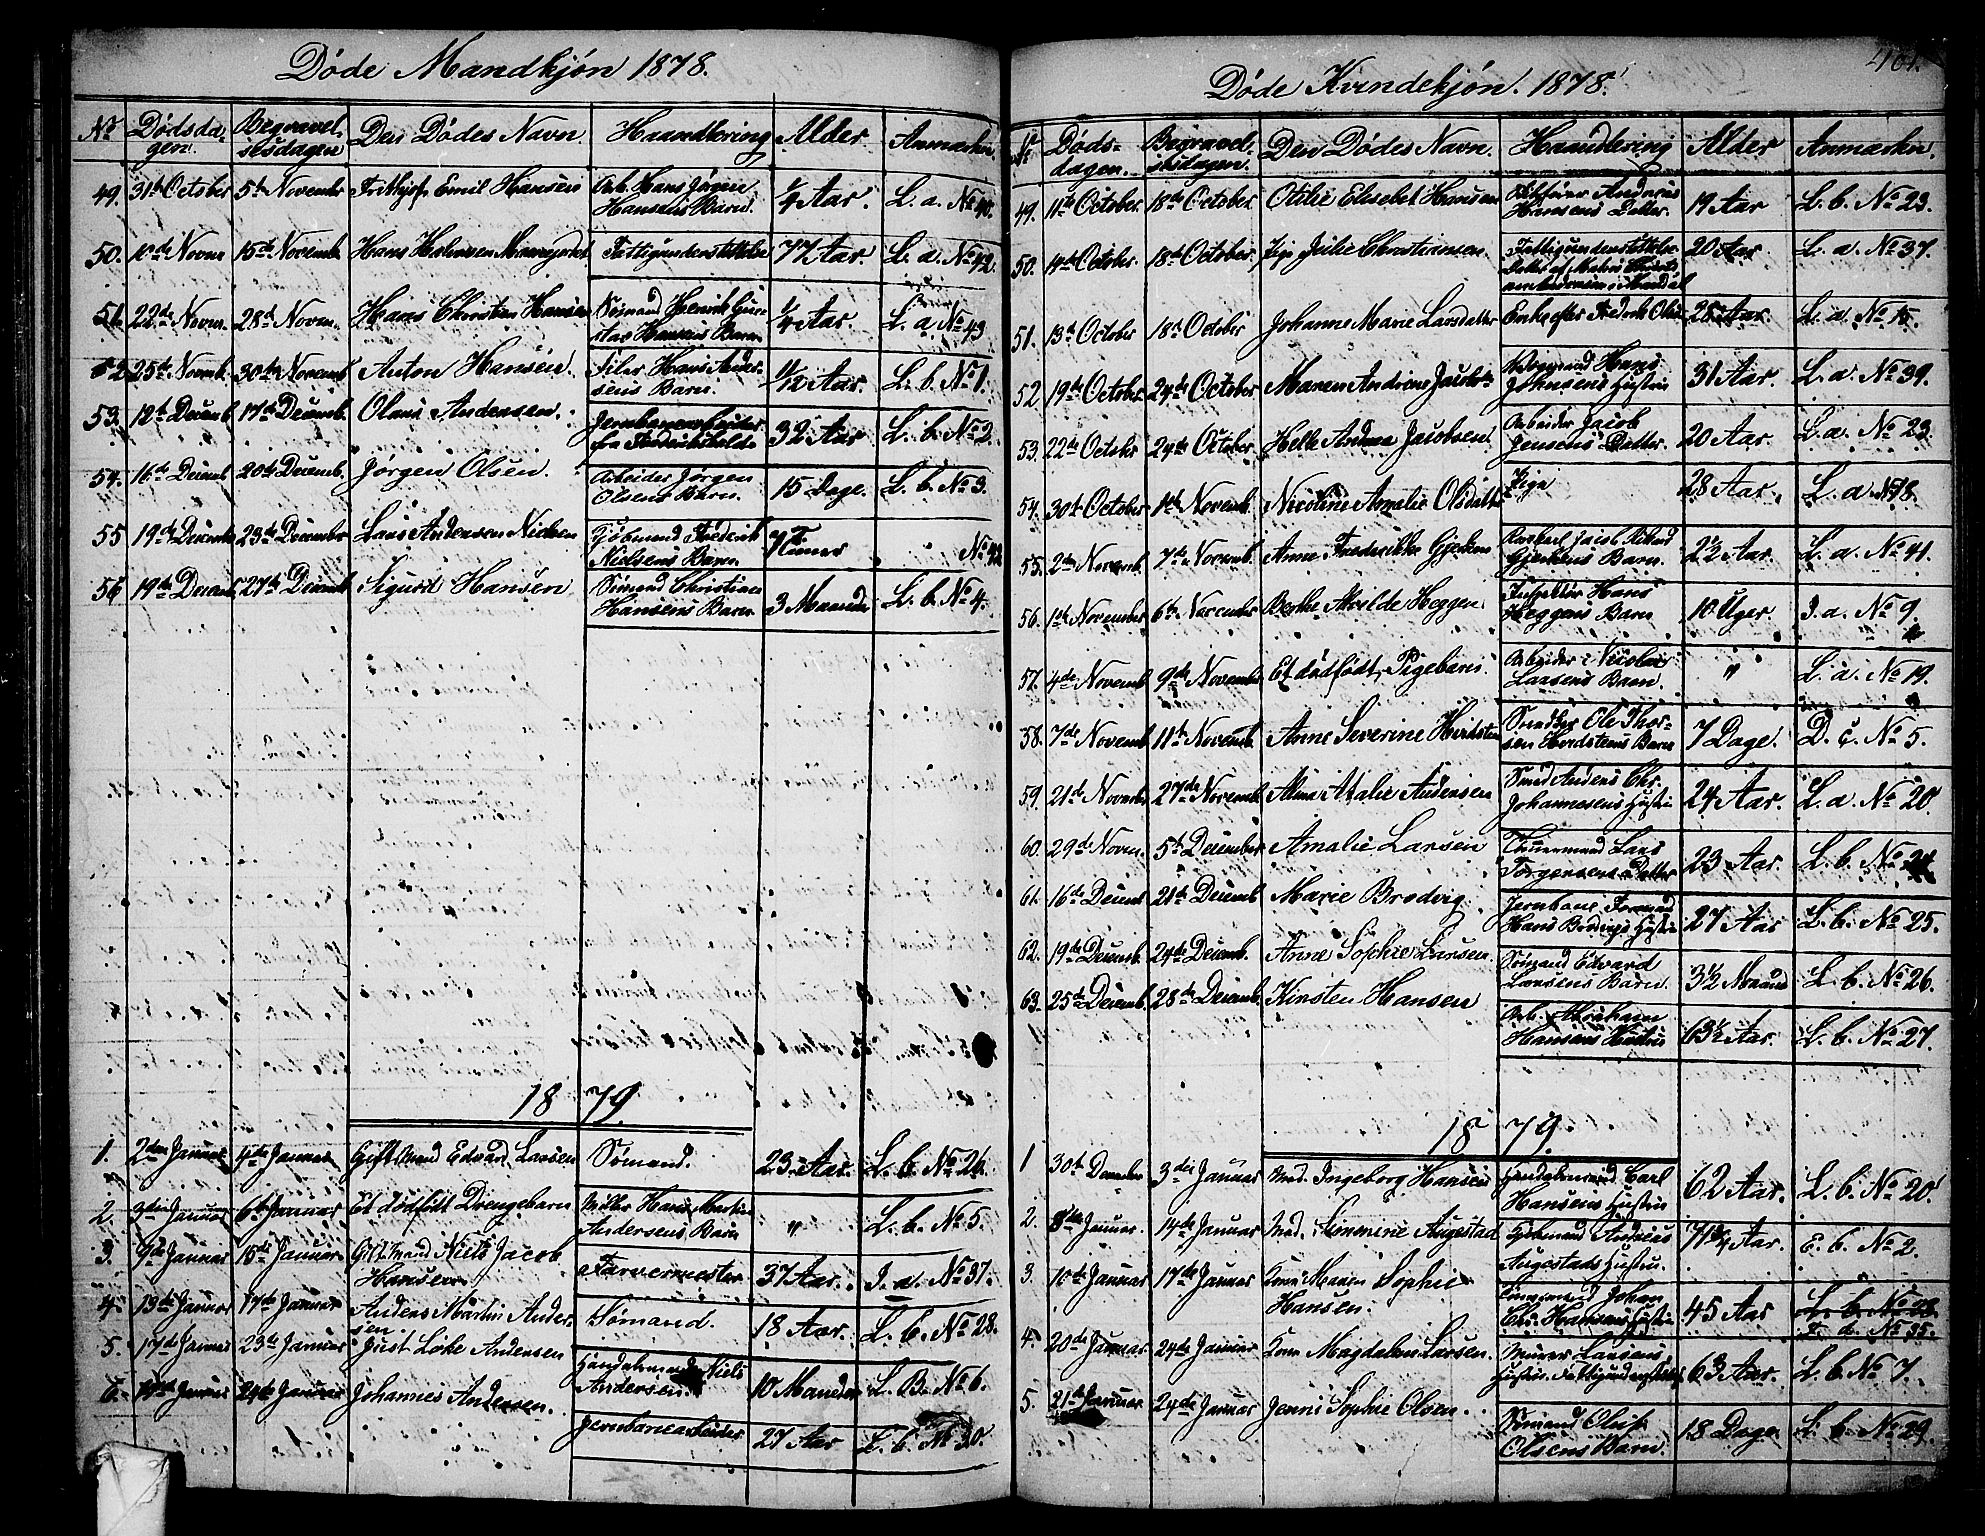 Døde Mandkjøn 1878.
No Dødsdagen. Begravelsesdagen Den Dødes Navn. Haandtering Alder Anmærkn.
49. 31te October 5te November Frithjof Emil Hansen Arb. Hans Jørgen Hansens Barn. 1/4 Aar. L. a. No 40.
50. 10de Novem 15de Novemb. Hans Fattigunderstøttelse 77 Aar. L. a. No 42.
51. 22de Novem. 28de Novem. Hans Christian Hansen Sømand Henrik Gustav Hansens Barn 1/4 Aar. L. a. No 43
52 25de Novemb. 30te Novemb Anton Hansen. Filer Hans Andersens Barn. 11/12 Aar. L. b. No 1.
53. 12te Decemb. 17de Decemb. Olaus Andersen. Jernbanearbeider fra Frederikshald 32 Aar L. b. No 2
54. 16de Decemb 20de Decemb. Jørgen Olsen. Arbeider Jørgen Olsens Barn. 15 Dage. L. b. No 3.
55 19de December 23de December Lars Andersen Nielsen Kjøbmand Frederik Nielsens Barn 7 Timer No 42
56 19de Decemb. 27de Decemb Sigurd Hansen Sømand Christian Hansens Barn 3 Maaneder L. b. No 4.
1879.
1. 2den Januar 4de Januar Gift Mand Edvard Larsen Sømand. 23 Aar. L. b. No 26.
2. 3die Januar 6te Januar Et dødfødt Drengebarn Møller Hans Martin Andersens Barn " L. b. No 5.
3. 9de Januar 15de Januar Gift Mand Niels Jacob Hansen Farvermester 37 Aar. I. a. No 37.
4. 13de Januar 17de Januar Anders Martin Andersen Sømand. 18 Aar. L. b. No 28.
5. 17de Januar 23de Januar Just Loke Andersen Handelsmand Niels Andersens 10 Maaneder L. B. No 6.
6. 24de Januar Johannes Andersen. Jernbanearbeider 27 Aar L. b. No 30.
461.
Døde Kvindekjøn. 1878.
No Dødsdagen. Begravelsesdagen. Den Dødes Navn. Haandtering Alder Anmærkn.
49. 11te October. 18de October. Otilie Elisebet Hansen Andreas Hansens Datter. 19 Aar L. b. No 23.
50. 14de Octobr. 18de October. Pige Julie Christiansen Fattigunderstøttelse Datter af 20 Aar L. a. No 37.
51. 13de October 18de October Johanne Marie Larsdatter Enke efter Fredrik Olsen 28 Aar. L. a. No 15.
52 19de October. 24de October Maren Andrine Jacobs. Hans Johnsens Hustru 31 Aar. L. a. No 39.
53. 22de Octobr 24de October Helle Andrea Jacobsen. Arbeider Jacob Jensens Datter. 20 Aar. L. a. No 23.
54. 30te October 1ste Novemb. Nicoline Amalie Olsdatter Pige 28 Aar. L. a. No 18.
55. 2den Novemb. 7de Novemb. Anne Frederikke Gjerkens Gjerkens Barn. 2½ Aar. L. a. No 41.
56. 1ste November 6te November Berthe Alvilde Heggen. Inspektør Hans Heggens Barn 10 Uger. I. a. No 9.
57. 4de Novemb 9de Novemb Et dødfødt Pigebarn. Arbeider Nicolai Larsens Barn. " L. a. No 19.
58. 7de Novemb. 11te Novemb. Anne Severine Hvidsteen Snedker Ole Thorsen Hvidsteens Barn 7 Dage. D. c. No 5.
59. 21de Novemb. 27de Novemb. Alma Atalie Andersen Smed Anders Chr. Johannesens Hustru 24 Aar. L. a. No 20
60. 29de Novem. 5te December Amalie Larsen Lars Torgersens Datter 23 Aar. L. b. No 24
61. 16de Decemb 21de Decemb Marie Brodvig. Jernbane Formand Hans Brodvigs Hustru 27 Aar L. b. No 25.
62. 19de Decemb. 24de Decemb. Anne Sophie Larsen. Sømand Edvard Larsens Barn. 3½ Maaned L. b. No 26.
63. 25de Decemb. 28de Decemb. Kirsten Hansen Arb. Abraham Hansens Hustru 63½ Aar. L. b. No 27.
1879.
1 30te December 3die Januar Mad. Ingeborg Hansen Handelsmand Carl Hansens Hustru 62 Aar. L. b. No 20
2. 8de Januar. 14de Januar Mad. Simmine Augestad Kjøbmand Andreas Augestads Hustru. 71¾ Aar. E. b. No 2.
3. 10de Januar 17de Januar Kone Maren Sophie Hansen. Tømmermand Johan Chr. Hansens Hustru 45 Aar L. b. No 28 F. d. No 35.
4. 20de Januar 24de Januar Kone Magdalene Larsen. Murer Larsens Hustru. Fattigunderstøttelse 63 Aar. L. b. No 7.
5. 21de Januar 24de Januar Jenni Sophie Olsen. Sømand Oluf Olsens Barn. 18 Dage L. b. No 29.